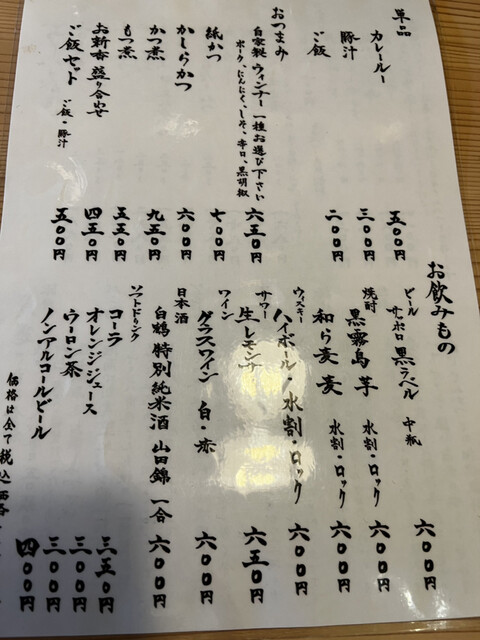 単品
カレールー 五〇〇円
豚汁 三〇〇円
ご飯 二〇〇円
おつまみ
自家製ウィンナー 一種お選び下さい 六五〇円
ポーク、にんにく、しそ、辛口、黒胡椒
紙かつ 七〇〇円
かしらかつ 六〇〇円
かつ煮 九五〇円
もつ煮 五五〇円
お新香盛り合わせ 四五〇円
ご飯セット ご飯・豚汁 五〇〇円
お飲みもの
ビール
サッポロ黒ラベル 中瓶 六〇〇円
焼酎
黒霧島 芋 水割・ロック 六〇〇円
和ら麦 麦 水割・ロック 六〇〇円
ウィスキー
ハイボール・水割・ロック 六〇〇円
サワー
生レモンサワー 六五〇円
ワイン
グラスワイン 白・赤 六〇〇円
日本酒
白鶴 特別純米酒 山田錦 一合 六〇〇円
ソフトドリンク
コーラ 三五〇円
オレンジジュース 三〇〇円
ウーロン茶 三〇〇円
ノンアルコールビール 四〇〇円
価格は全て税込価格